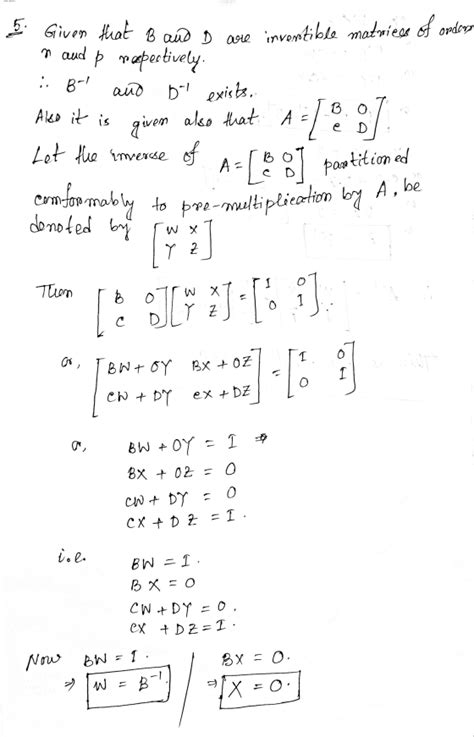 5. Given that B and D are invertible matrices of orders
n and p respectively.
∴ B⁻¹ and D⁻¹ exists.
Also it is given also that A = [B O; C D].
Let the inverse of A = [B O; C D] partitioned
comformably to pre-multiplication by A, be
denoted by [W X; Y Z]
Then [B O; C D] [W X; Y Z] = [I O; O I].
or, [BW + OY BX + OZ; CW + DY CX + DZ] = [I O; O I]
or, BW + OY = I ⇒
BX + OZ = O
CW + DY = O
CX + DZ = I.
i.e. BW = I.
BX = O
CW + DY = O.
CX + DZ = I.
Now BW = I. / BX = O.
⇒ W = B⁻¹ / ⇒ X = O.